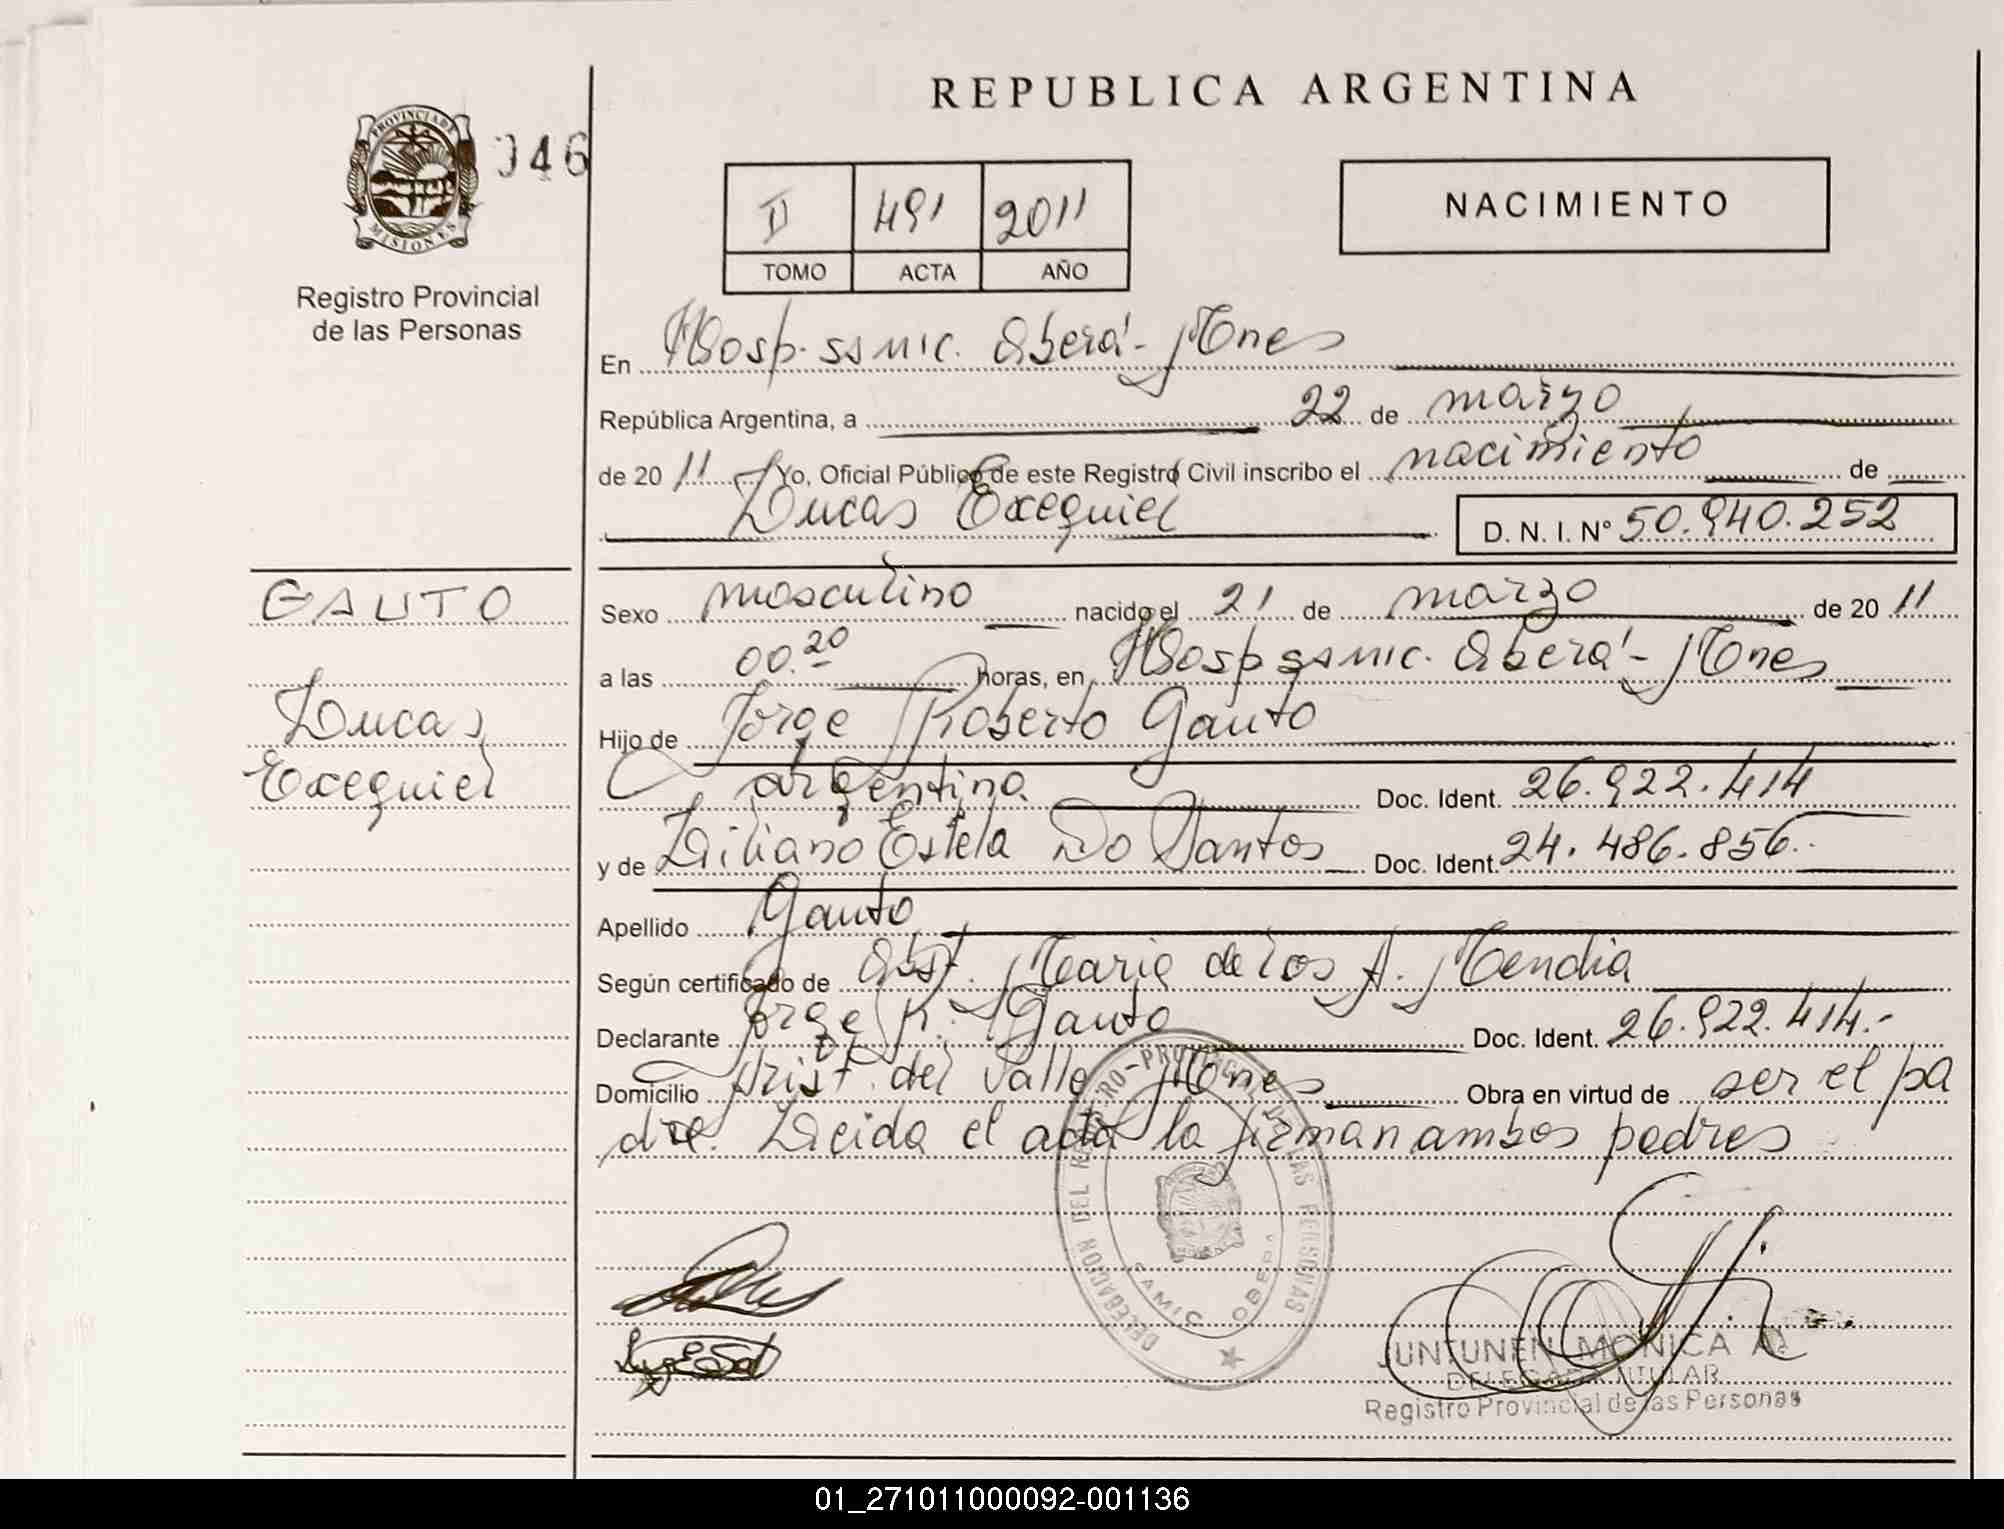 REPUBLICA ARGENTINA
PROVINCIA DE
MISIONES
046
Registro Provincial
de las Personas
II 491 2011
TOMO ACTA AÑO
NACIMIENTO
En Hosp. SAMIC. Oberá - Mnes
República Argentina, a 22 de marzo
de 20 11 Yo, Oficial Público de este Registro Civil inscribo el nacimiento de
Lucas Exequiel D. N. I. Nº 50.940.252
GAUTO
Lucas
Exequiel
Sexo masculino nacido el 21 de marzo de 20 11
a las 00.20 horas, en Hosp SAMIC. Oberá - Mnes
Hijo de Jorge Roberto Gauto
argentina Doc. Ident. 26.922.414
y de Liliana Estela Do Santos Doc. Ident. 24.486.856.
Apellido Gauto
Según certificado de Obst. Maria de los A. Mendia
Declarante Jorge R. Gauto Doc. Ident. 26.922.414.-
Domicilio Arist. del Valle Mnes Obra en virtud de ser el pa
dre. Leida el acta la firman ambos padres
DELEGACION DEL REGISTRO PROVINCIAL DE LAS PERSONAS
SAMIC OBERA
JUNTUNEN MONICA A.
DELEGADA TITULAR
Registro Provincial de las Personas
01_271011000092-001136